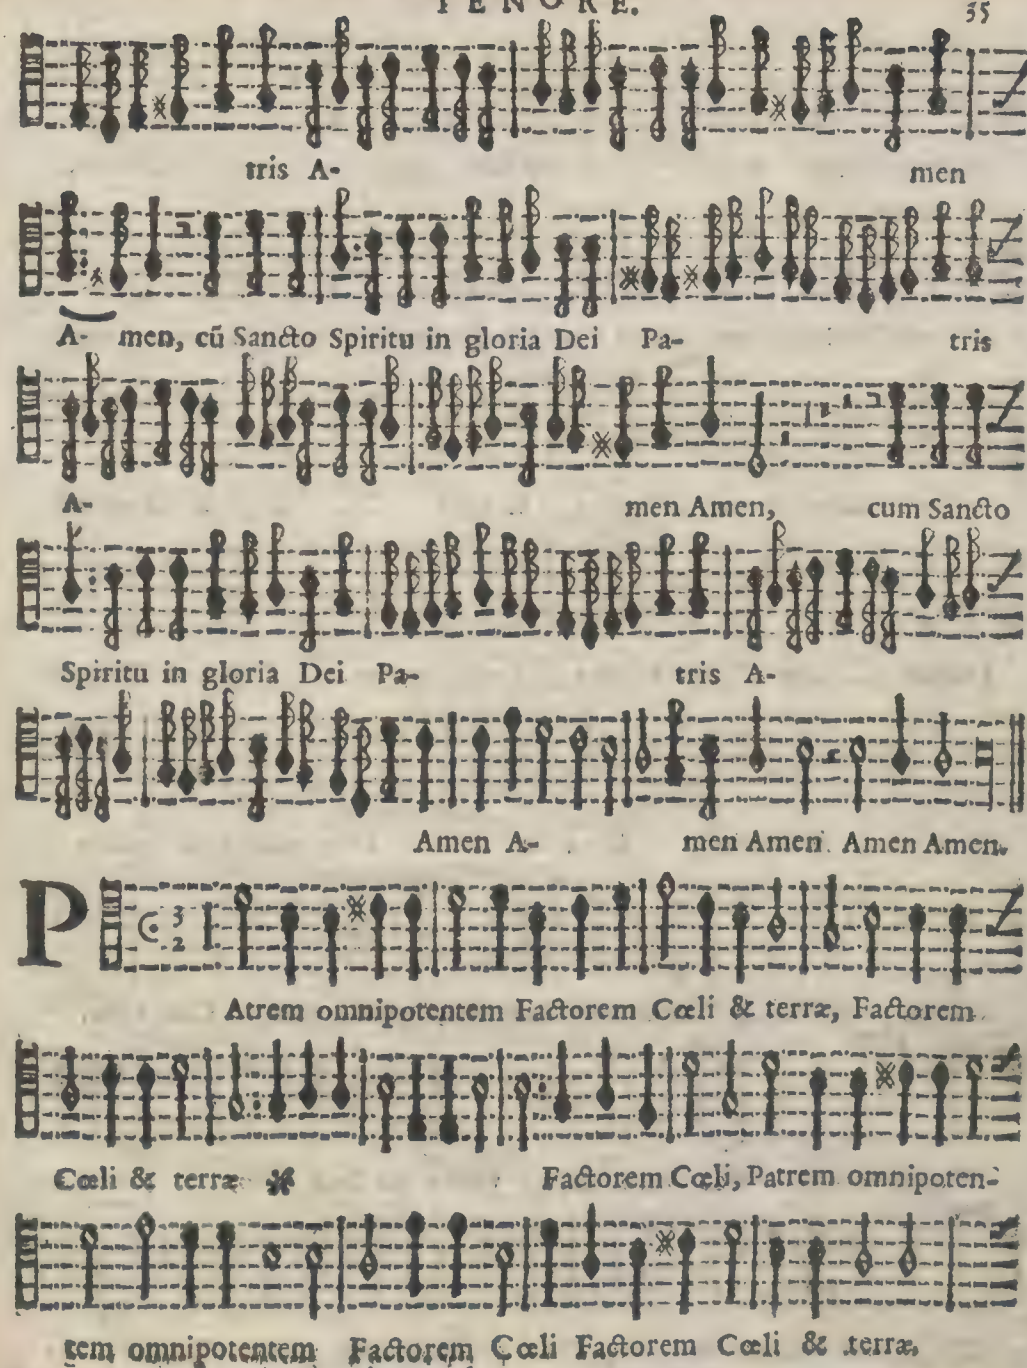 TENORE. 35
tris A- men
A- men, cū Sancto Spiritu in gloria Dei Pa- tris
A- men Amen, cum Sancto
Spiritu in gloria Dei Pa- tris A-
Amen A- men Amen. Amen Amen.
P 3 2
Atrem omnipotentem Factorem Cœli & terræ, Factorem
Cœli & terræ Factorem Cœli, Patrem omnipoten-
tem omnipotentem Factorem Cœli Factorem Cœli & terræ,